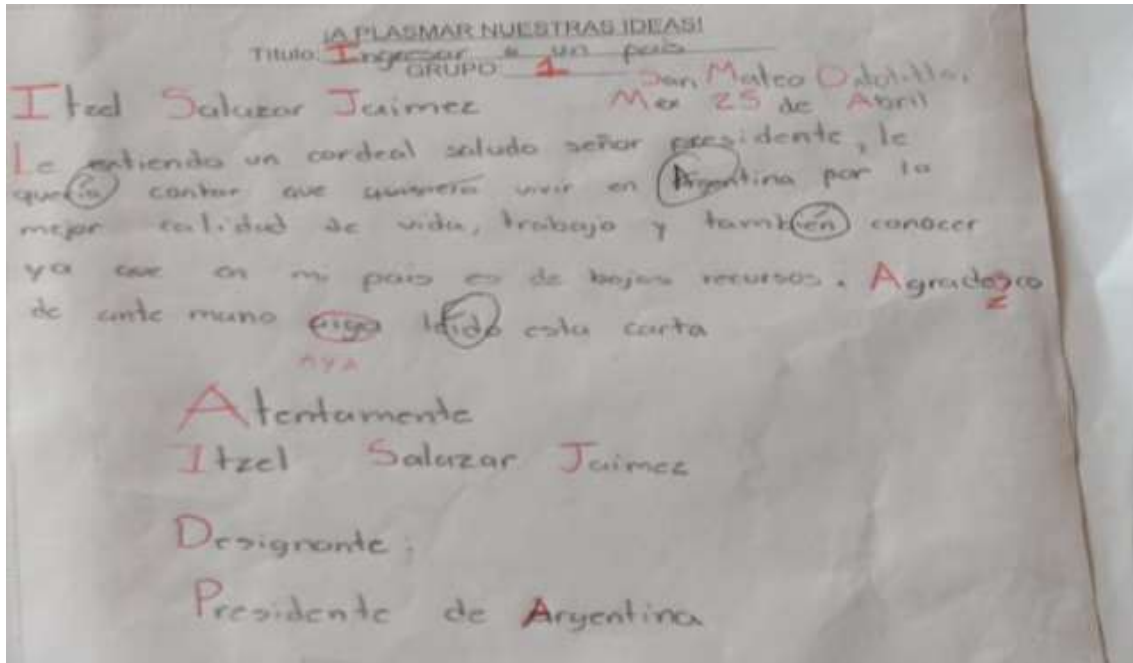 ¡A PLASMAR NUESTRAS IDEAS!
Titulo: Ingresar a un pais
GRUPO: 1
San Mateo
Itzel Salazar Jaimez Mex 25 de Abril
Le entiendo un cordeal saludo señor presidente, le
quería contar que quisiera vivir en Argentina por la
mejor calidad de vida, trabajo y también conocer
ya que en mi pais es de bajos recursos. Agradesco
z
de ante mano aiga leído esta carta
AYA
Atentamente
Itzel Salazar Jaimez
Designante:
Presidente de Argentina